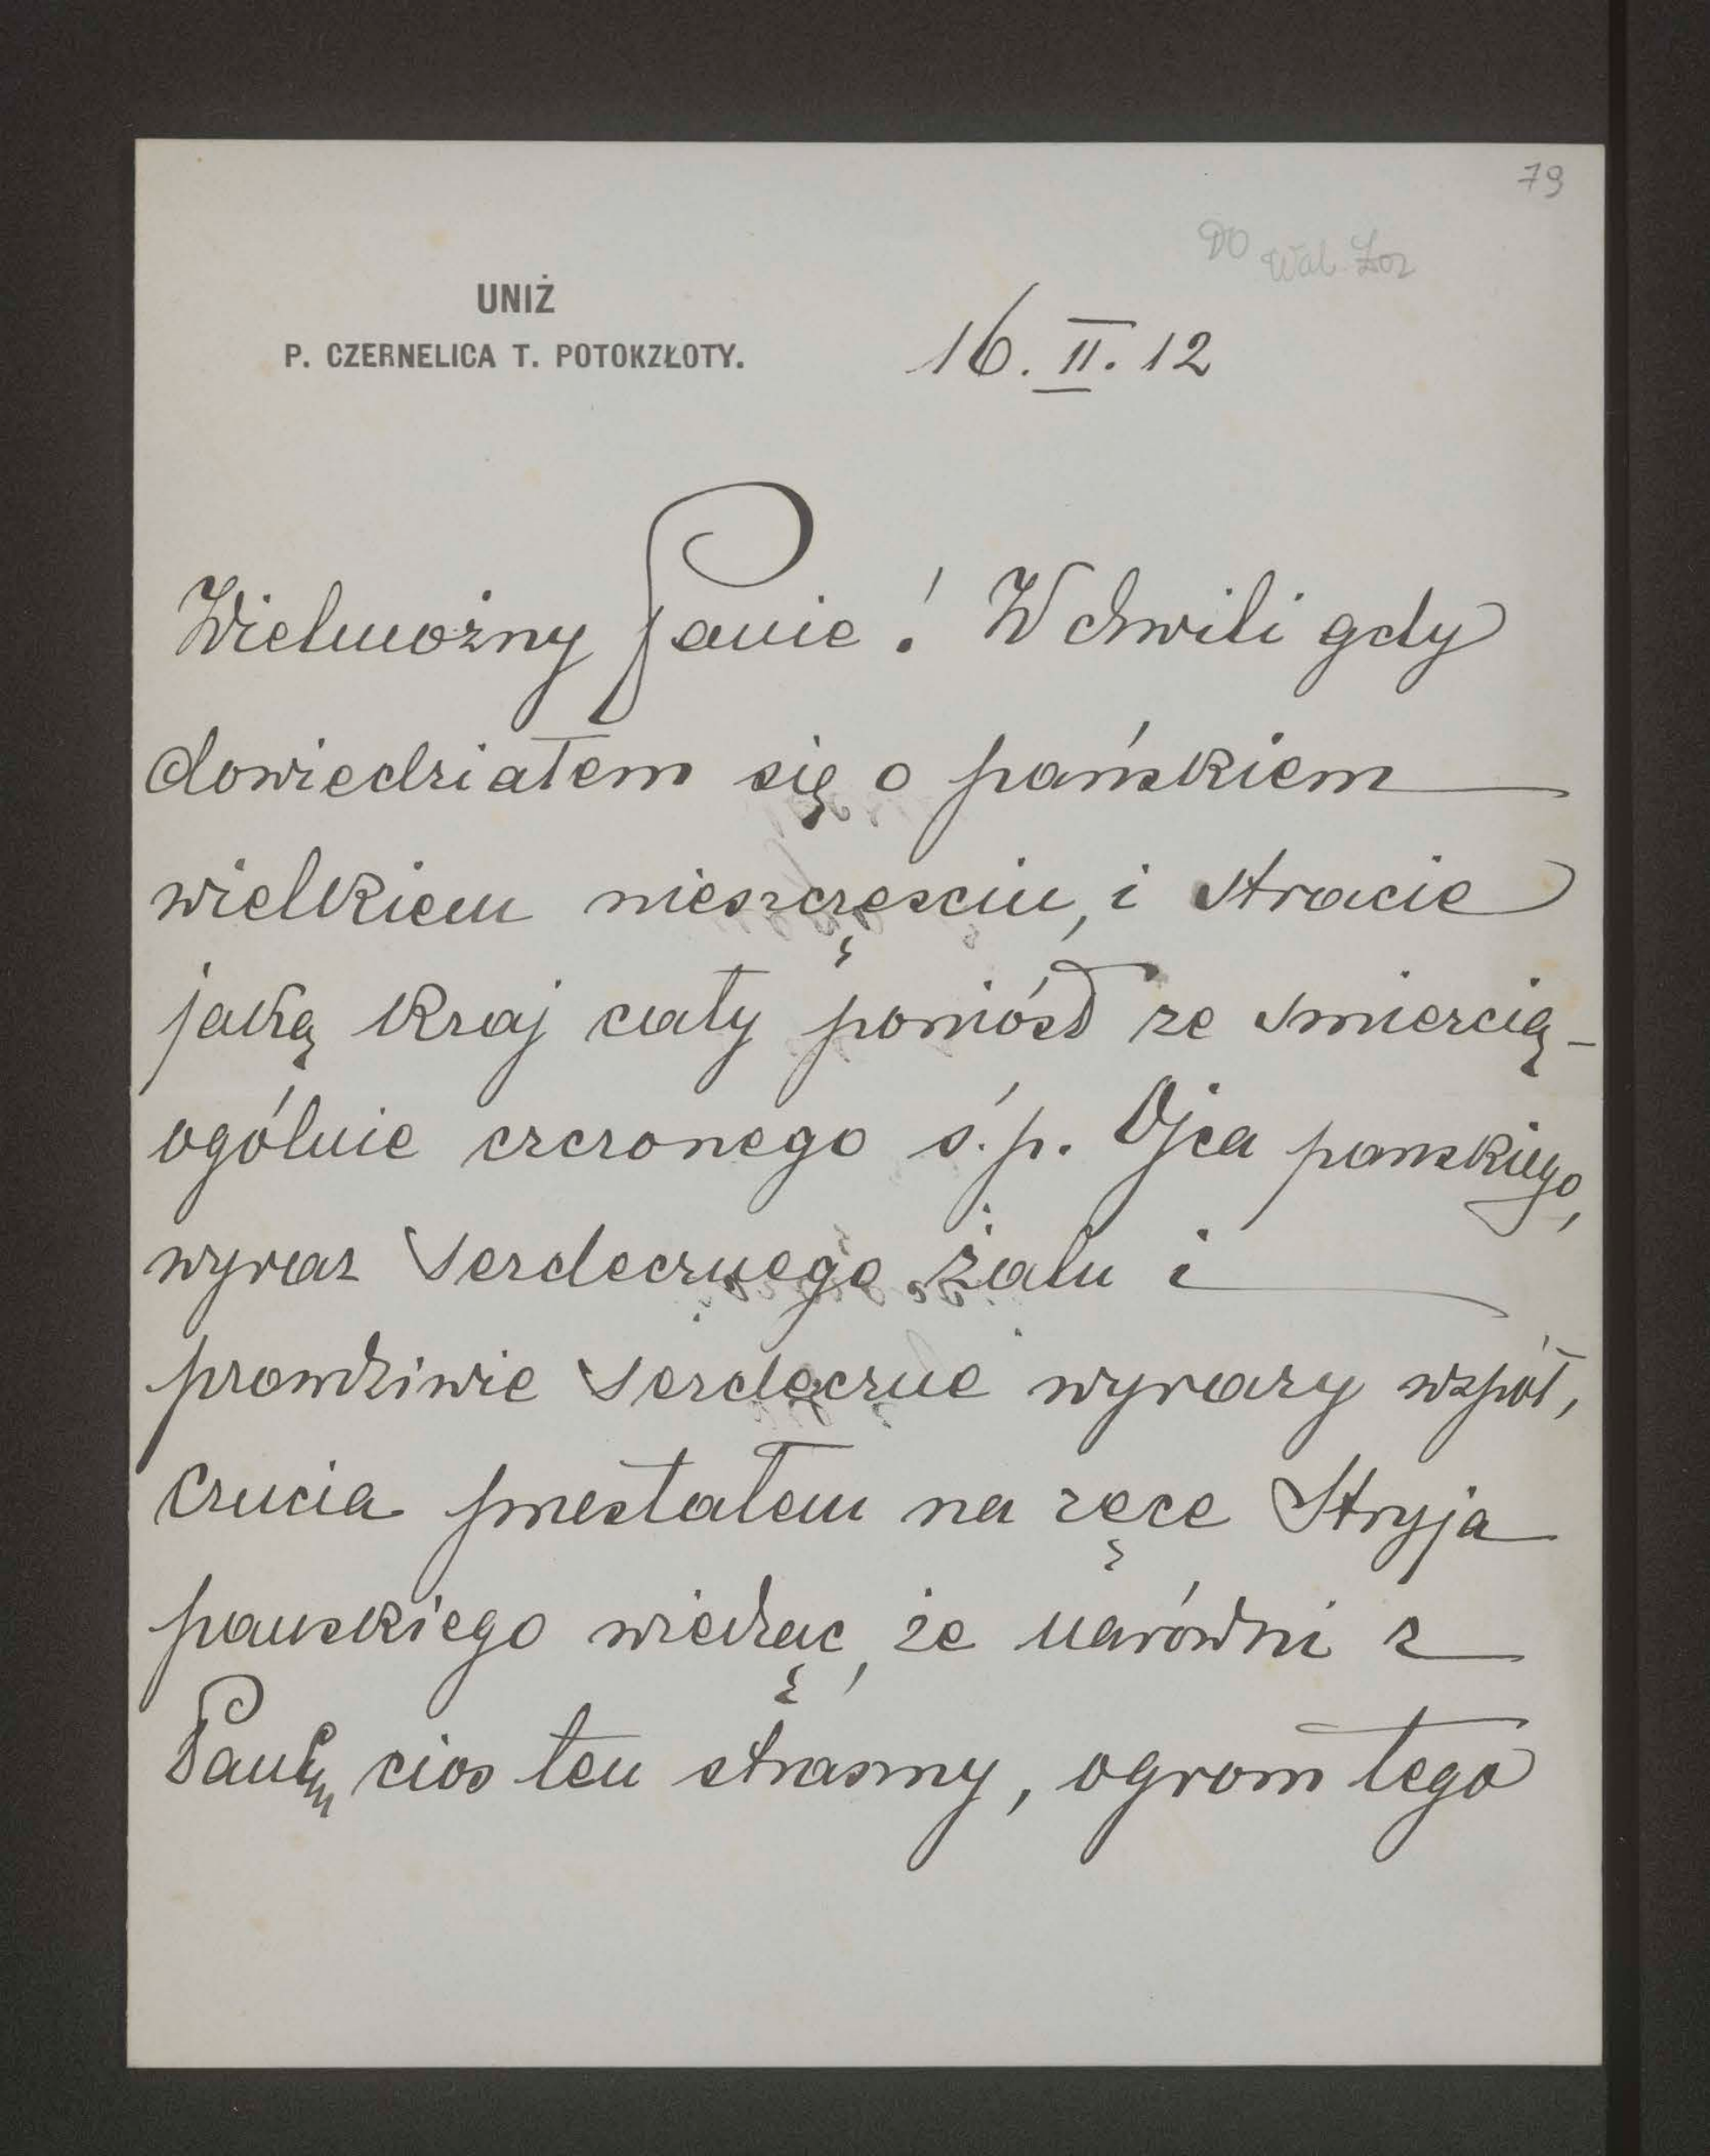 79
DO Wal. Łoz
UNIŻ
P. CZERNELICA T. POTOKZŁOTY.
16. II. 12
Wielmożny Panie! W chwili gdy
dowiedziałem się o pańskiem
wielkiem nieszczęsciu, i stracie
jaką kraj cały poniósł ze smiercią
ogólnie czczonego ś.p. Ojca panskiego,
wyraz serdecznego żalu i
prawdziwie serdeczne wyrazy współ,
czucia przesłałem na ręce Stryja
panskiego wiedząc, że narówni z
Panem cios ten straszny, ogrom tego